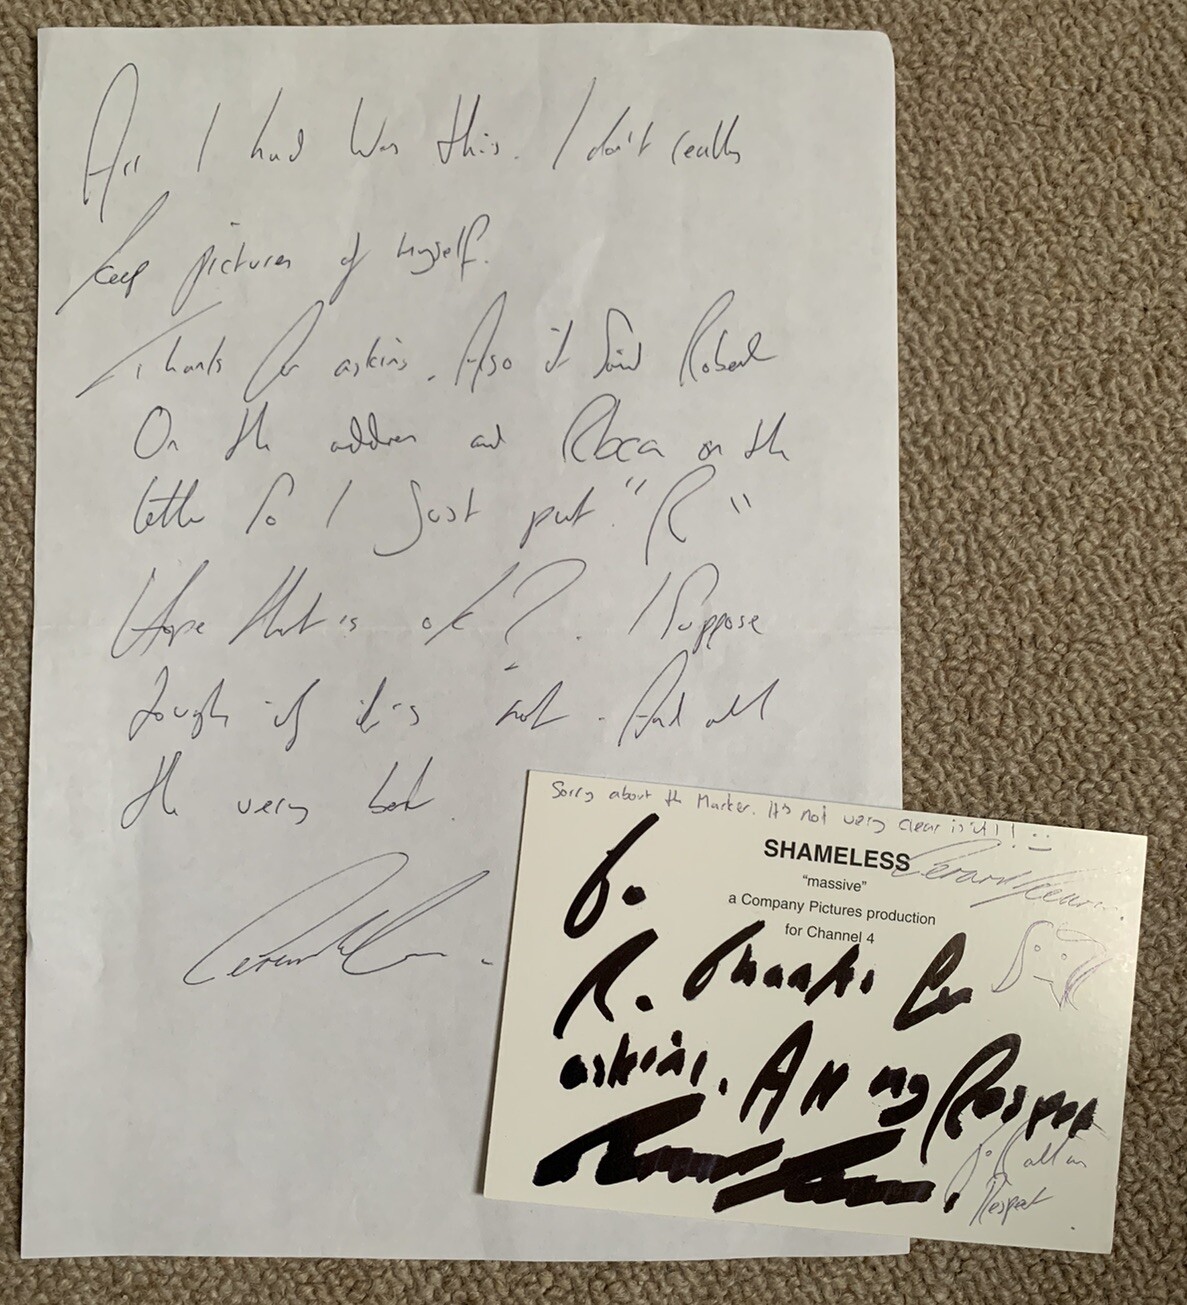 All I had was this. I don't really
keep pictures of myself.
Thanks for asking. Also it said Robert
On the address and Rbca on the
letter So I Just put "R"
Hope that is ok? . I Suppose
tough if it's not. And all
the very best.
Gerard Kearns.
Sorry about the Marker. It's not very clear is it!! :-
SHAMELESS
"massive"
a Company Pictures production
for Channel 4
Gerard Kearns.
To.
R. Thanks for
asking. All my Respect
Gerard Kearns.
To. R all my
Respect.